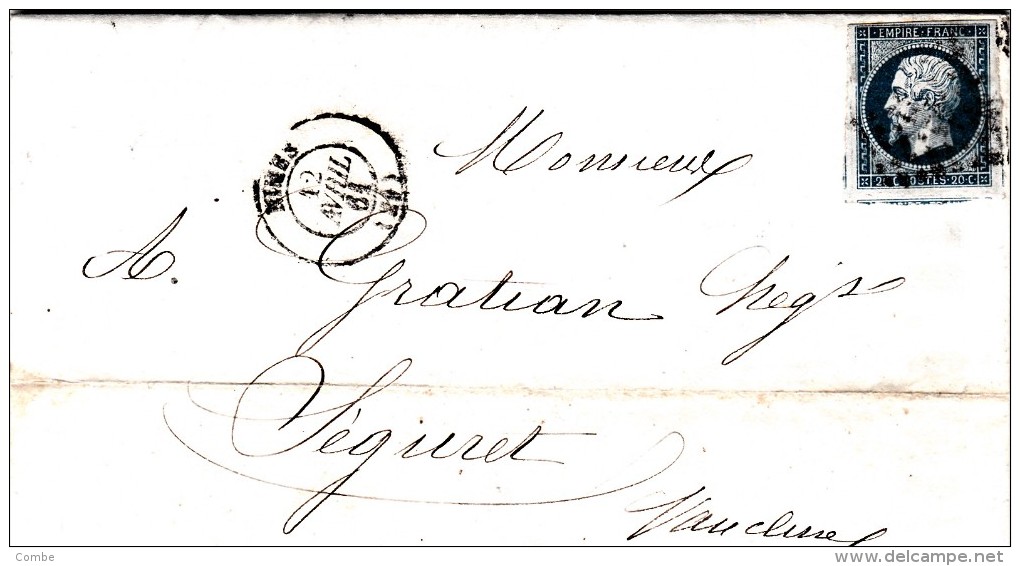 EMPIRE·FRANC·
20·C·POSTES·20·C·
NIMES
12
AVRIL
61
Monsieur
A. Gratian Negt
Séguret
Vaucluse
Combe
www.delcampe.net